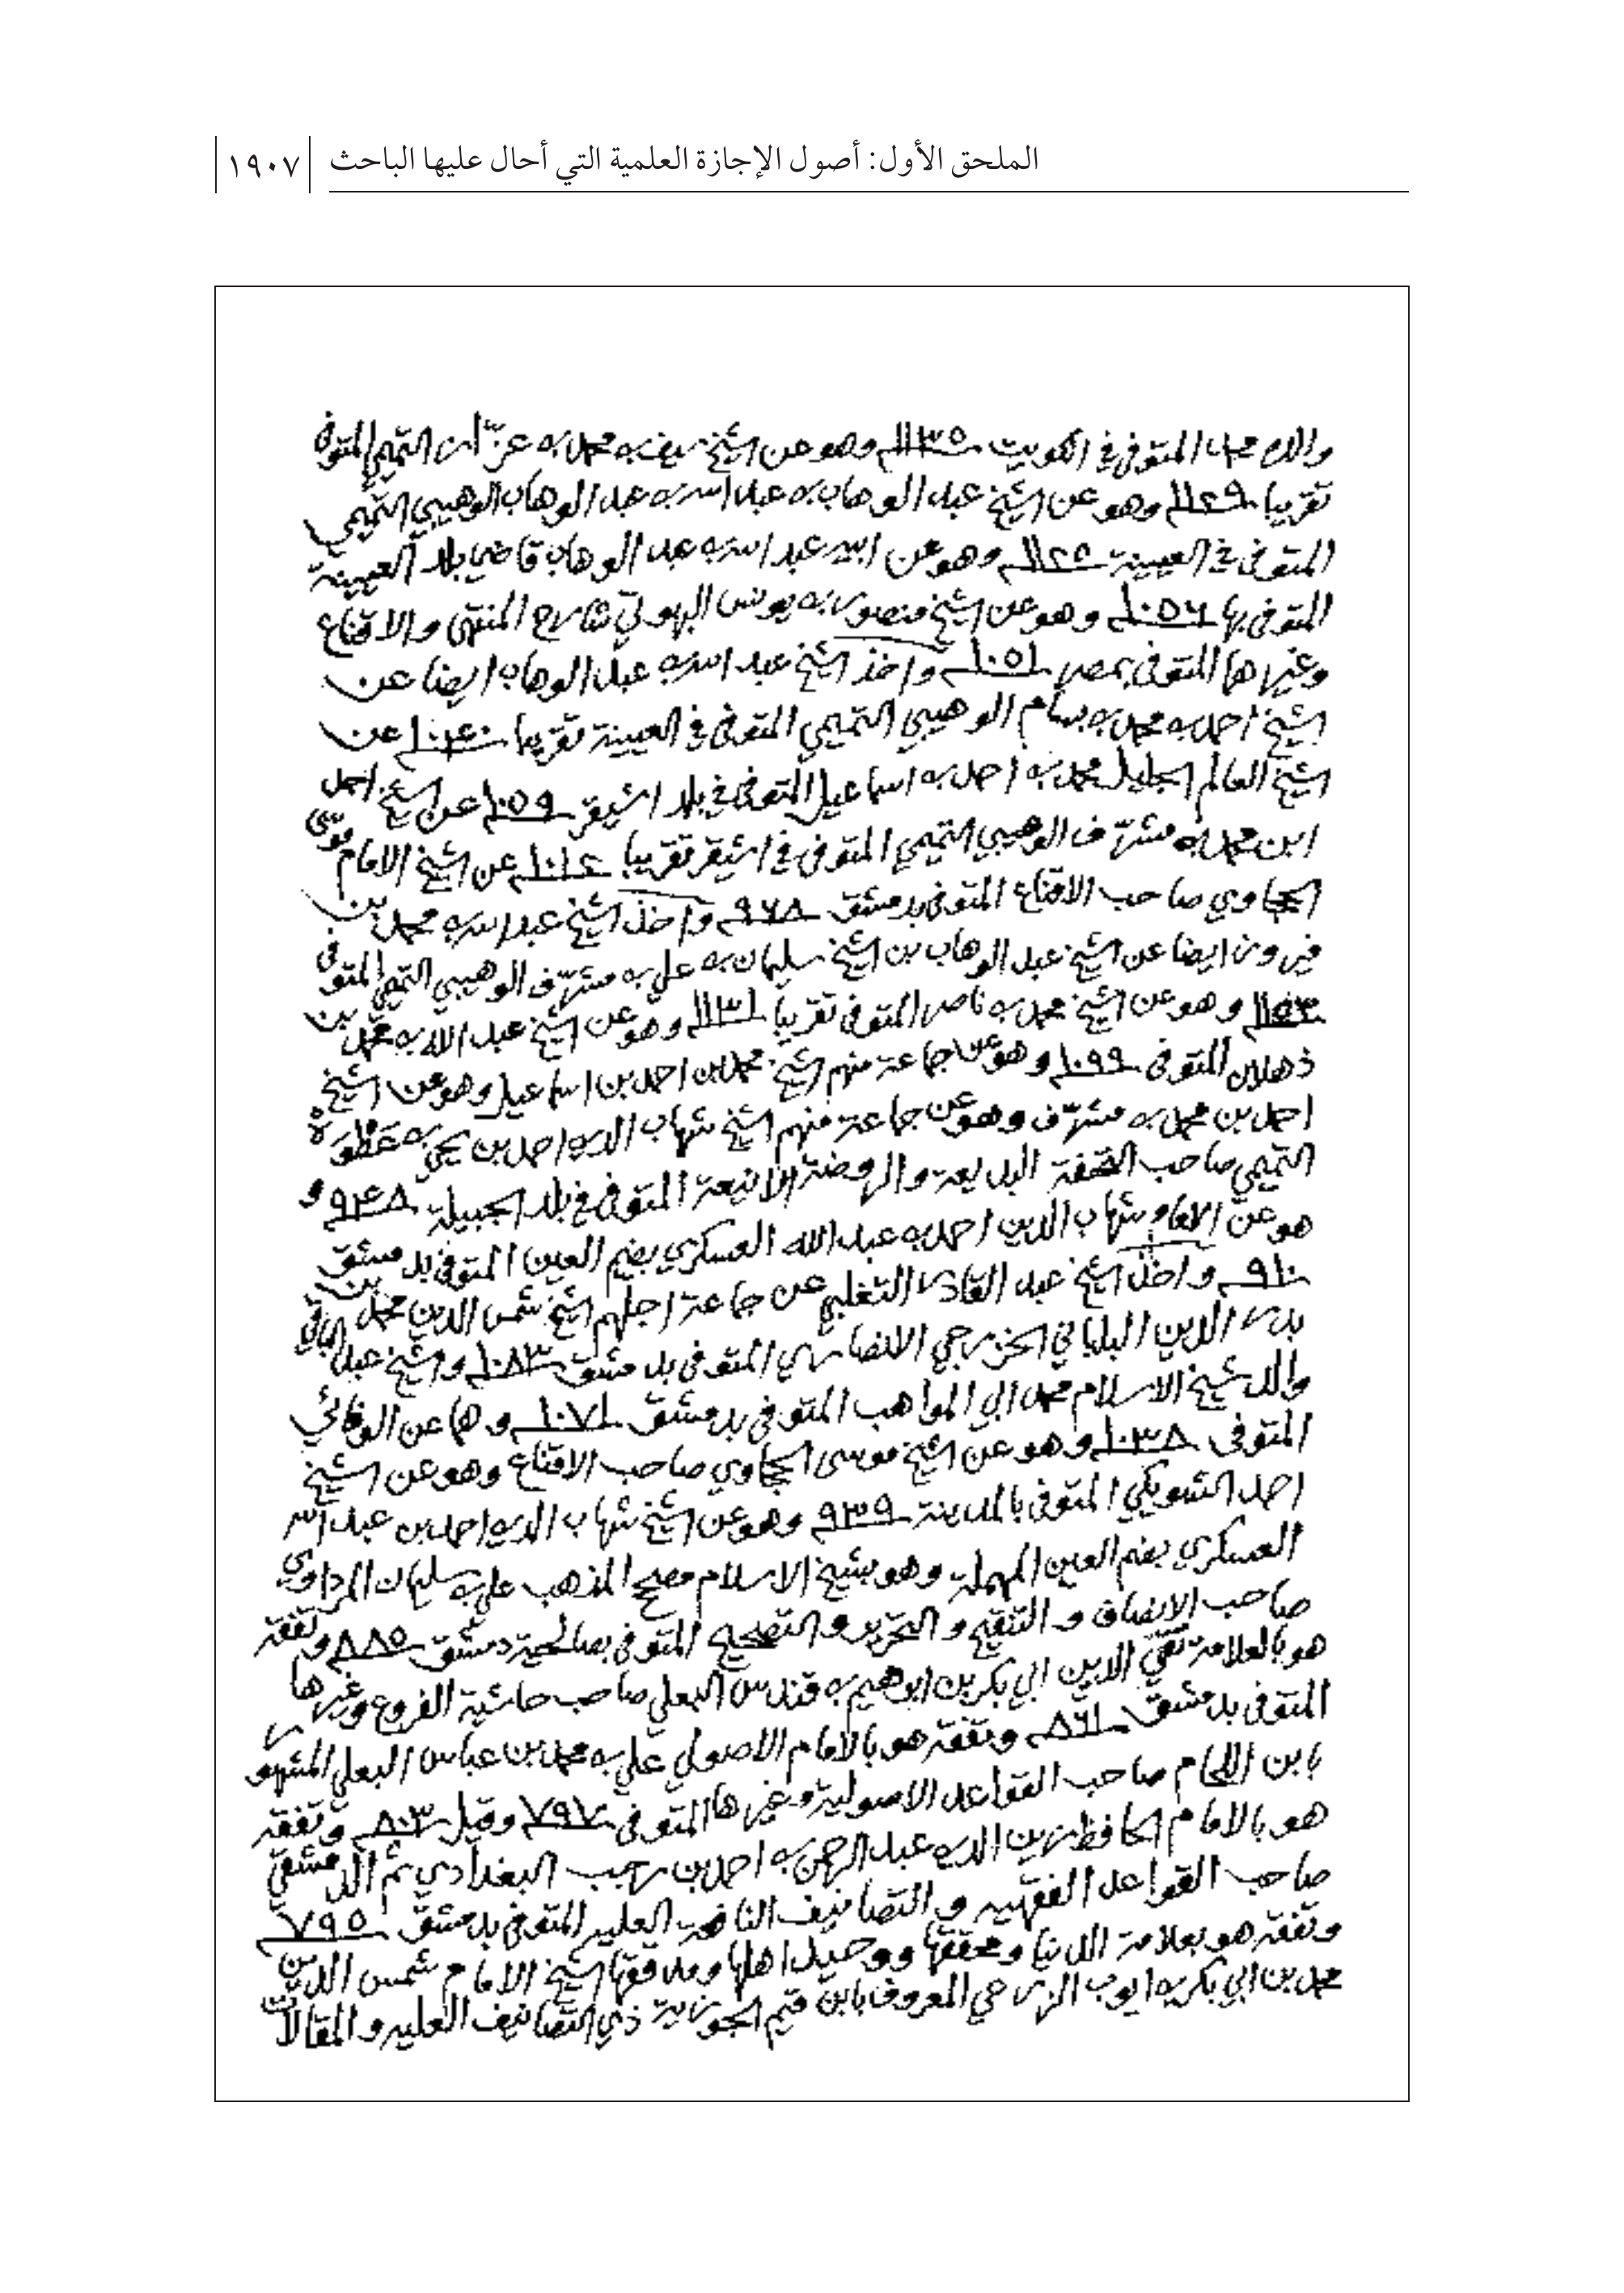 الملحق الأول: أصول الإجازة العلمية التي أحال عليها الباحث ١٩٠٧
والده محمد المتوفى في الكويت ١١٣٥ وهو عن الشيخ سيف به محمد به عزّاز التميمي المتوفى
تقريبا ١١٢٩ وهو عن الشيخ عبد الوهاب به عبد الله به عبد الوهاب الوهيبي التميمي
المتوفى في العيينة ١١٢٥ وهو عن ابيه عبد الله به عبد الوهاب قاضي بلد العيينة
المتوفى بها ١٠٥٦ وهو عن الشيخ منصور به يونس البهوتي شارح المنتهى والاقناع
وغيرها المتوفى بمصر ١٠٥١ واخذ الشيخ عبد الله به عبد الوهاب ايضا عن
الشيخ احمد به محمد به بسام الوهيبي التميمي المتوفى في العيينة تقريبا ١٠٤٠ عن
الشيخ العالم الجليل محمد به احمد به اسماعيل المتوفى في بلد اشيقر ١٠٥٩ عن الشيخ احمد
ابن محمد به مشرّف الوهيبي التميمي المتوفى في اشيقر تقريبا ١٠١٢ عن الشيخ الامام موسى
الحجاوي صاحب الاقناع المتوفى بدمشق ٩٦٨ واخذ الشيخ عبد الله به محمد بن
فيروز ايضا عن الشيخ عبد الوهاب بن الشيخ سليمان به علي به مشرّف الوهيبي التميمي المتوفى
١١٥٣ وهو عن الشيخ محمد به ناصر المتوفى تقريبا ١١٣١ وهو عن الشيخ عبد الله به محمد بن
ذهلان المتوفى ١٠٩٩ وهو عن جماعة منهم الشيخ محمد بن احمد بن اسماعيل وهو عن الشيخ
احمد بن محمد به مشرّف وهو عن جماعة منهم الشيخ شهاب الديه احمد بن يحيى به عَطْوَة
التميمي صاحب التحفة البديعة والروضة الانيعة المتوفى في بلد الجبيلة ٩٤٨ و
هو عن الامام شهاب الدين احمد به عبد الله العسكري بضم العين المتوفى بدمشق
٩١٠ واخذ الشيخ عبد القادر التغلبي عن جماعة اجلهم الشيخ شمس الدين محمد بن
بدر الدين البلباني الخزرجي الانصاري المتوفى بدمشق ١٠٨٣ والشيخ عبد الباقي
والد شيخ الاسلام محمد ابي المواهب المتوفى بدمشق ١٠٧١ وهما عن الوفائي
المتوفى ١٠٣٨ وهو عن الشيخ موسى الحجاوي صاحب الاقناع وهو عن الشيخ
احمد الشويكي المتوفى بالمدينة ٩٣٩ وهو عن الشيخ شهاب الديه احمد بن عبد الله
العسكري بضم العين المهملة وهو بشيخ الاسلام مصحح المذهب علي به سليمان المرداوي
صاحب الانصاف والتنقيح والتحرير والتصحيح المتوفى بصالحية دمشق ٨٨٥ وتفقه
هو بالعلامة تقيّ الدين ابي بكر بن ابراهيم به قندس البعلي صاحب حاشية الفروع وغيرها
المتوفى بدمشق ٨٦١ وتفقه هو بالامام الاصولي علي به محمد بن عباس البعلي المشهور
بابن اللحام صاحب القواعد الاصولية وغيرها المتوفى ٧٩٧ وقيل ٨٠٣ وتفقه
هو بالامام الحافظ زين الديه عبد الرحمن به احمد بن رجب البغدادي ثم الدمشقي
صاحب القواعد الفقهيه والتصانيف النافعة العليه المتوفى بدمشق ٧٩٥
وتفقه هو بعلامة الدنيا ومحققها ووحيد اهلها ومدققها الشيخ الامام شمس الدين
محمد بن ابي بكر به ايوب الزرعي المعروف بابن قيم الجوزية ذي التصانيف العليه والمقالات